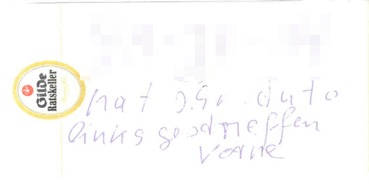 Gilde
Ratskeller
hat I.Gr. Auto
links getroffen
vorne